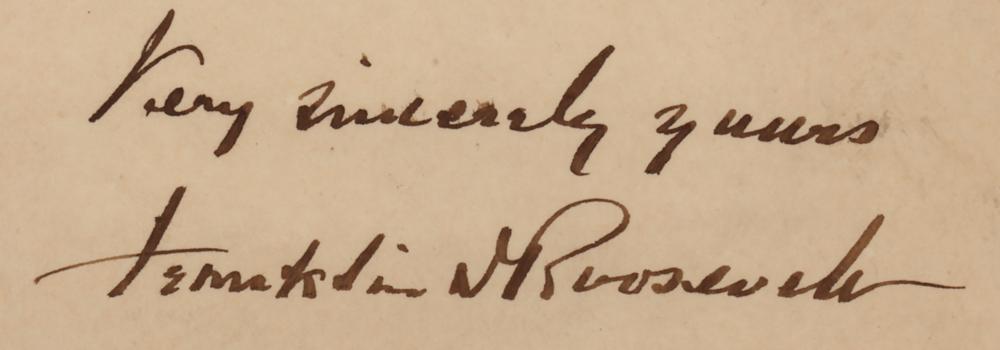 Very sincerely yours
Franklin D Roosevelt